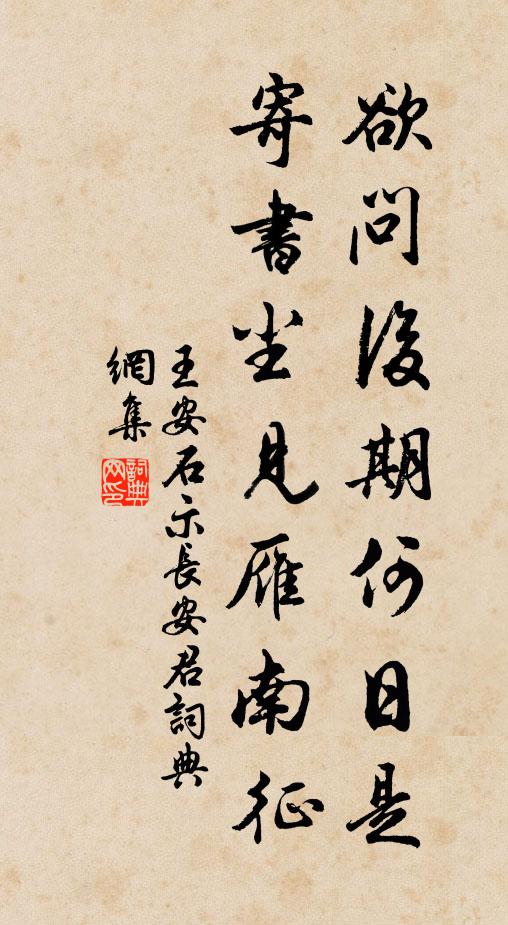 欲問後期何日是
寄書尘見雁南征
王安石示長安君詞典
網集
詞典网印